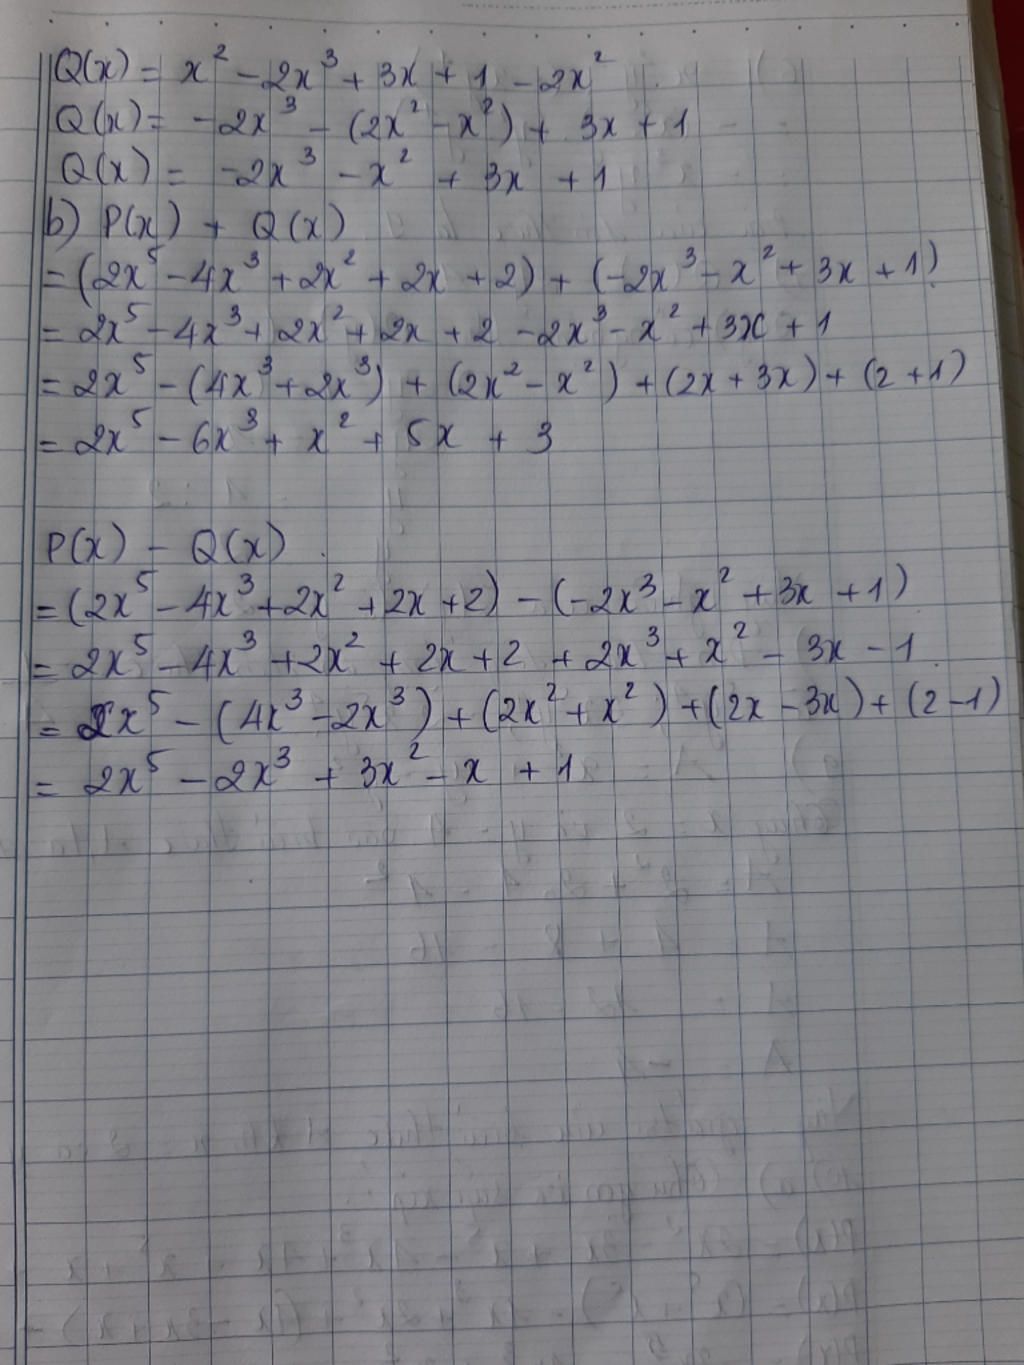 Q(x) = x² - 2x³ + 3x + 1 - 2x²
Q(x) = -2x³ - (2x² - x²) + 3x + 1
Q(x) = -2x³ - x² + 3x + 1
b) P(x) + Q(x)
= (2x⁵ - 4x³ + 2x² + 2x + 2) + (-2x³ - x² + 3x + 1)
= 2x⁵ - 4x³ + 2x² + 2x + 2 - 2x³ - x² + 3x + 1
= 2x⁵ - (4x³ + 2x³) + (2x² - x²) + (2x + 3x) + (2 + 1)
= 2x⁵ - 6x³ + x² + 5x + 3
P(x) - Q(x)
= (2x⁵ - 4x³ + 2x² + 2x + 2) - (-2x³ - x² + 3x + 1)
= 2x⁵ - 4x³ + 2x² + 2x + 2 + 2x³ + x² - 3x - 1
= 2x⁵ - (4x³ - 2x³) + (2x² + x²) + (2x - 3x) + (2 - 1)
= 2x⁵ - 2x³ + 3x² - x + 1